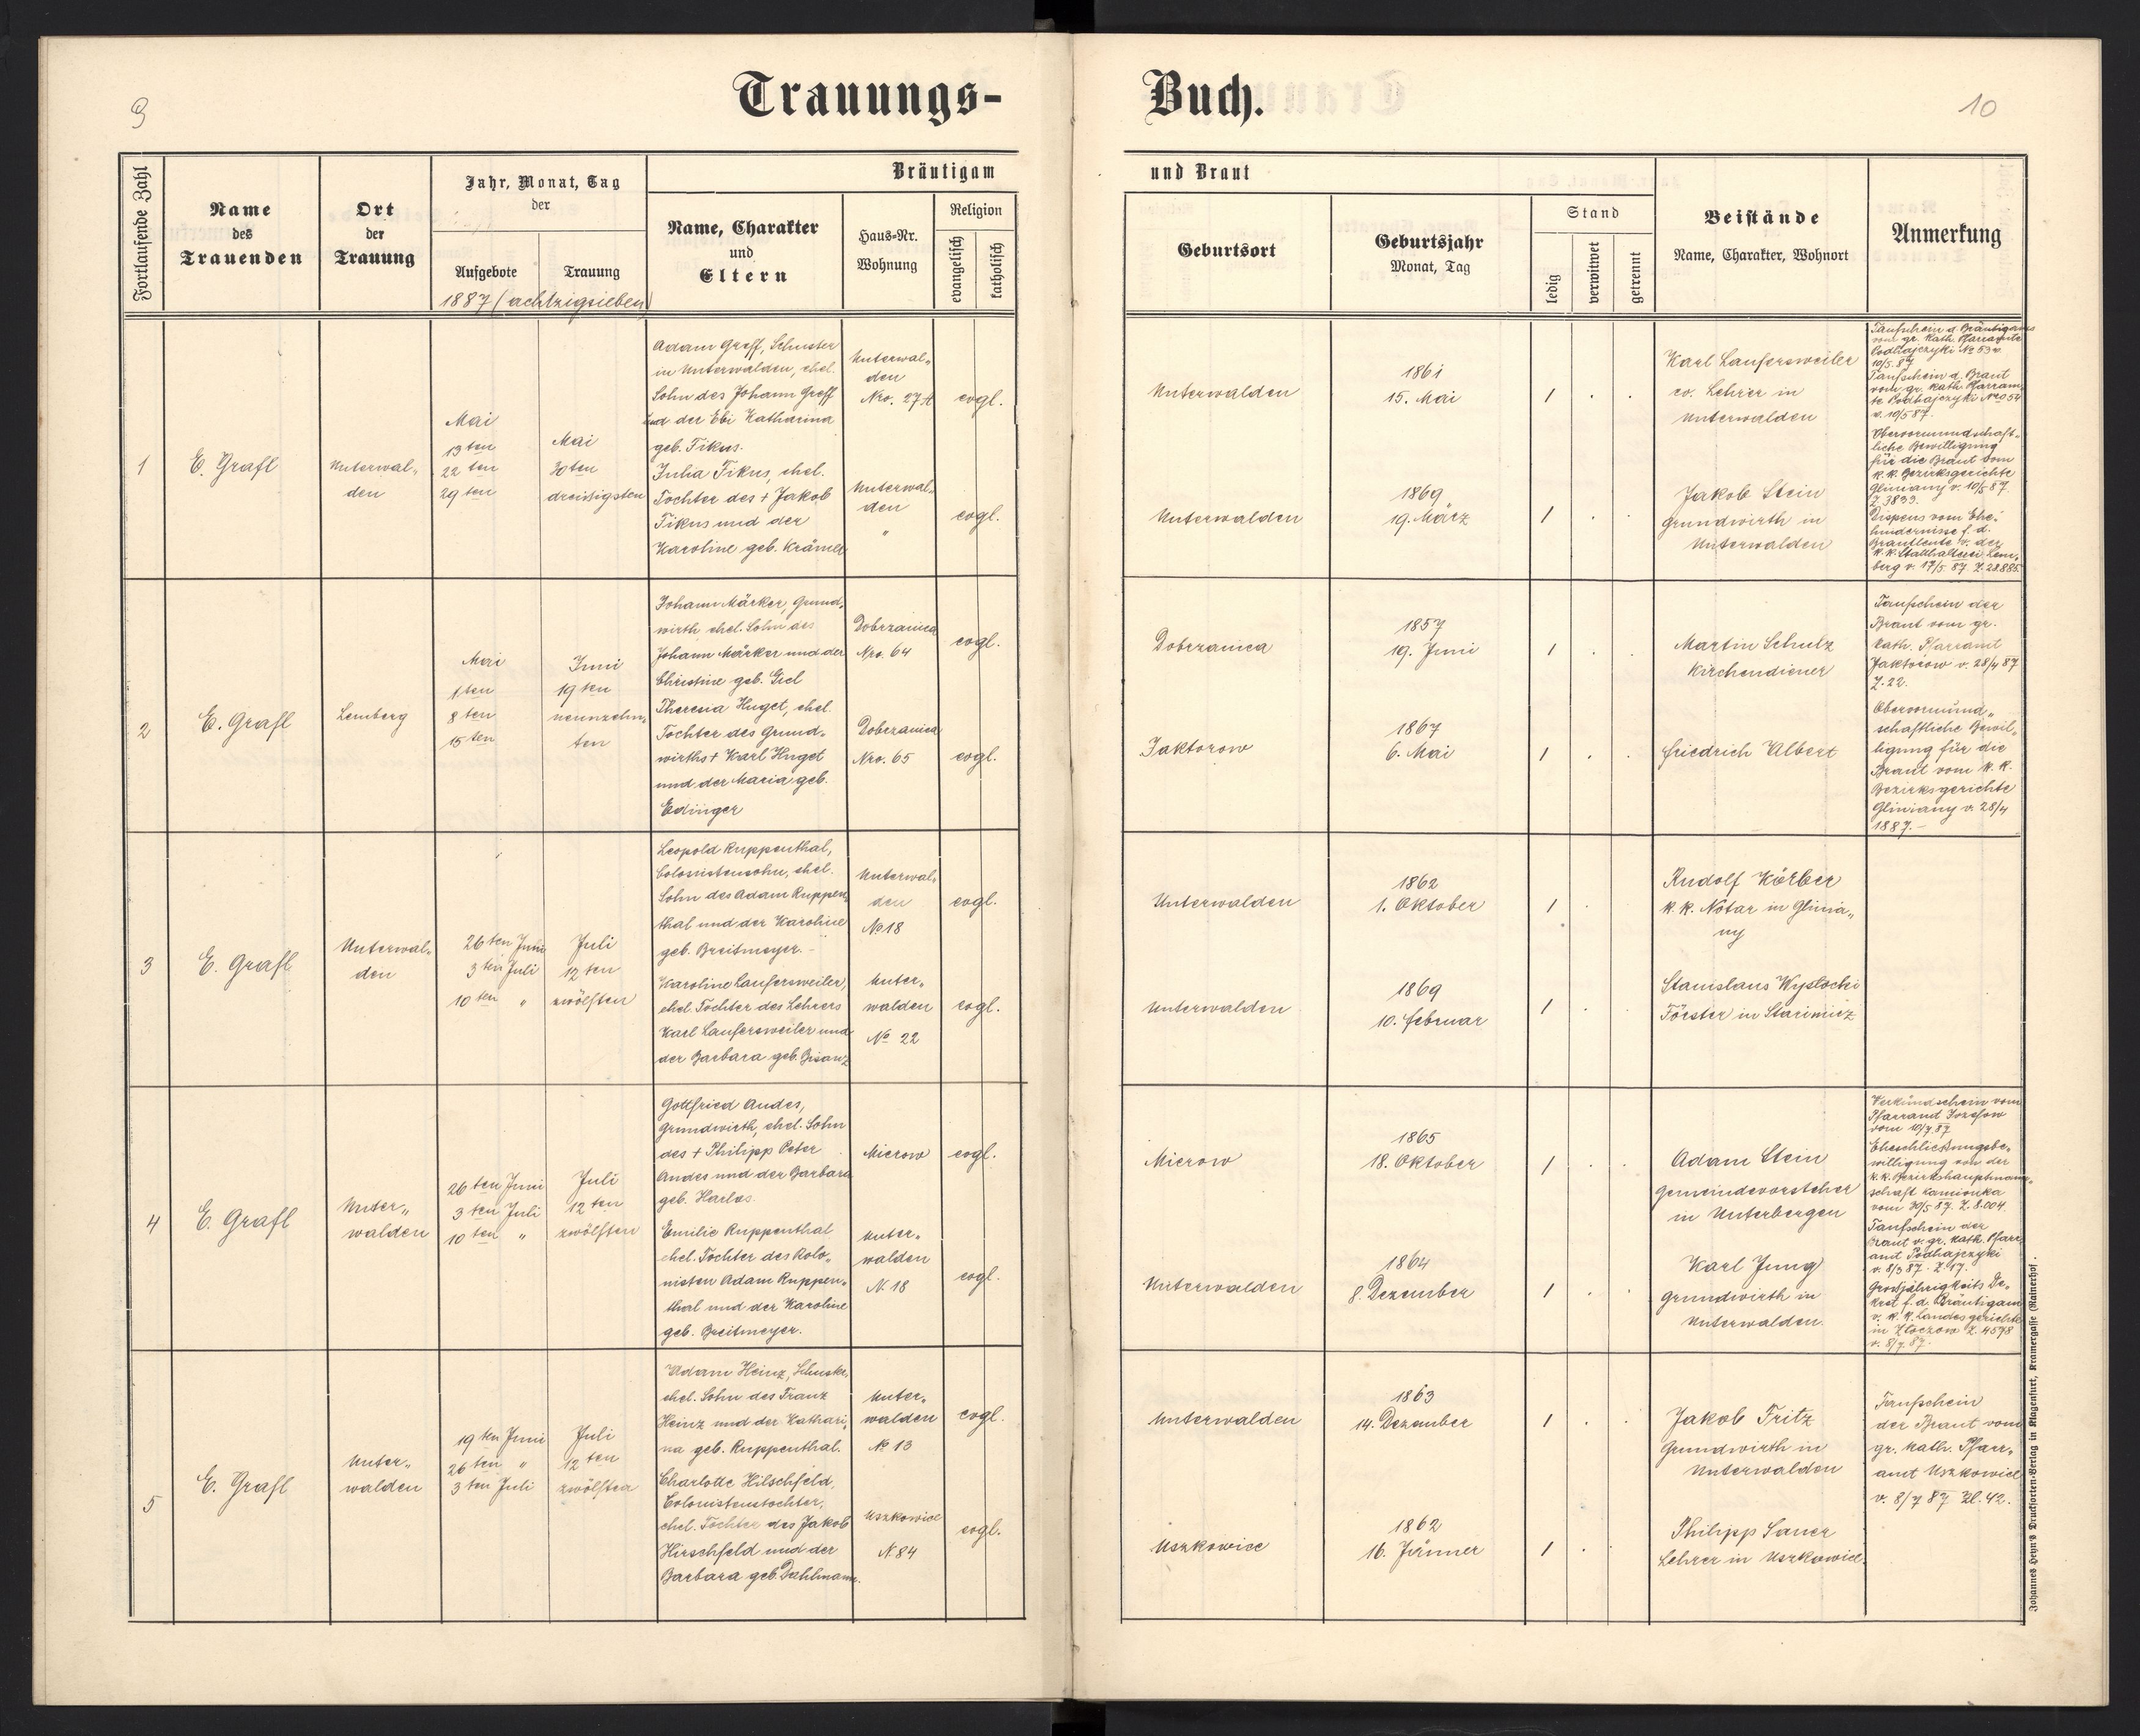 9
Trauungs-
Buch.
10
Fortlaufende Zahl
Name
des
Trauenden
Ort
der
Trauung
Jahr, Monat, Tag
der
Aufgebote
Trauung
1887 (achtzigsieben)
Bräutigam
Name, Charakter
und
Eltern
Haus-Nr.
Wohnung
Religion
evangelisch
katholisch
und Braut
Geburtsort
Geburtsjahr
Monat, Tag
Stand
ledig
verwitwet
getrennt
Beistände
Name, Charakter, Wohnort
Anmerkung
1
E. Grafl
Unterwal„
den
Mai
13ten
22ten
29ten
Mai
30ten
dreißigsten
Adam Greff, Schuster
in Unterwalden, ehel.
Sohn des Johann Greff
und der Ebi Katharina
geb. Fikus.
Julia Fikus, ehel.
Tochter des + Jakob
Fikus und der
Karoline geb. Krämer
Unterwal„
den
Nro. 27A
Unterwal„
den
"
evgl.
evgl.
Unterwalden
Unterwalden
1861
15. Mai
1869
19. März
1 . .
1 . .
Karl Laufersweiler
ev. Lehrer in
Unterwalden
Jakob Stein
Grundwirth in
Unterwalden
Taufschein d. Bräutigams
vom gr. kath. Pfarramte
Podhajczyki No 53 v.
10/5.87
Taufschein d. Braut
vom gr. kath. Pfarram„
te Podhajczyki Nro 54
v. 10/5 87.
Obervormundschaft„
liche Bewilligung
für die Braut vom
k.k. Bezirksgerichte
Gliniany v. 10/5 87
Z. 3833.
Dispens vom Ehe„
hindernisse f. d.
Brautleute v. der
k.k. Statthalterei Lem„
berg v. 17/5 87 Z. 28.885.
2
E. Grafl
Lemberg
Mai
1ten
8ten
15ten
Juni
19ten
neunzehn„
ten
Johann Märker, Grund„
wirth, ehel. Sohn des
Johann Märker und der
Christine geb. Gel
Theresia Huget, ehel.
Tochter des Grund„
wirths + Karl Huget
und der Maria geb.
Edinger
Dobrzanica
Nro. 64
Dobrzanica
Nro. 65
evgl.
evgl.
Dobrzanica
Jaktorow
1857
19. Juni
1867
6. Mai
1 . .
1 . .
Martin Schulz
Kirchendiener
Friedrich Albert
Taufschein der
Braut vom gr.
kath. Pfarramt
Jaktorow v. 28/4 87
Z. 22.
Obervormund„
schaftliche Bewil„
ligung für die
Braut vom k.k.
Bezirksgerichte
Gliniany v. 28/4
1887.-
3
E. Grafl
Unterwal„
den
26ten Juni
3ten Juli
10ten "
Juli
12ten
zwölften
Leopold Ruppenthal,
Colonistensohn, ehel.
Sohn des Adam Ruppen„
thal und der Karoline
geb. Breitmeyer.-
Karoline Laufersweiler,
ehel Tochter des Lehrers
Karl Laufersweiler und
der Barbara geb. Bisanz
Unterwal„
den
No 18
Unter„
walden
No 22
evgl.
evgl.
Unterwalden
Unterwalden
1862
1. Oktober
1869
10. Februar
1 .
1 .
Rudolf Körber
k.k. Notar in Glinia„
ny
Stanislaus Wysłocki
Förster in Starimicz
4
E. Grafl
Unter„
walden
26ten Juni
3ten Juli
10ten "
Juli
12ten
zwölften
Gottfried Andes,
Grundwirth, ehel. Sohn
des + Philipp Peter
Andes und der Barbara
geb. Harlos.
Emilie Ruppenthal
ehel. Tochter des Kolo„
nisten Adam Ruppen„
thal und der Karoline
geb. Breitmeyer.
Mierow
Unter„
walden
N. 18
evgl.
evgl.
Mierow
Unterwalden
1865
18. Oktober
1864
8. Dezember
1 . .
1 . .
Adam Stein
Gemeindevorsteher
in Unterbergen
Karl Jung
Grundwirth in
Unterwalden.
Verkündschein vom
Pfarramt Jozefow
vom 10/7 87
Eheschließungsbe„
willigung von der
k.k. Bezirkshauptmann„
schaft Kamionka
vom 30/5 87. Z. 8.004.
Taufschein der
Braut v. gr. kath. Pfarr
amt Podhajczyki
v. 8/3 87. Z. 17.
Großjährigkeits De„
kret f. d. Bräutigam
v. k. k. Landesgerichte
in Złoczow Z. 4578
v. 8/7 87.
5
E. Grafl
Unter„
walden
19ten Juni
26ten "
3ten Juli
Juli
12ten
zwölften
Adam Heinz, Schuster,
ehel. Sohn des Franz
Heinz und der Kathari„
na geb. Ruppenthal.
Charlotte Hilschfeld,
Colonistenstochter,
ehel. Tochter des Jakob
Hirschfeld und der
Barbara geb. Dahlmann.
Unter„
walden
No 13
Uszkowice
N. 84
evgl.
evgl.
Unterwalden
Uszkowice
1863
14. Dezember
1862
16. Jänner
1 . .
1 .
Jakob Fritz
Grundwirth in
Unterwalden
Philipp Sauer
Lehrer in Uszkowice.
Taufschein
der Braut vom
gr. kath. Pfarr„
amt Uszkowice
v. 8/7 87 Zl. 42.
Johannes Heyn's Drucksorten-Verlag in Klagenfurt, Kramergasse (Rainerhof).